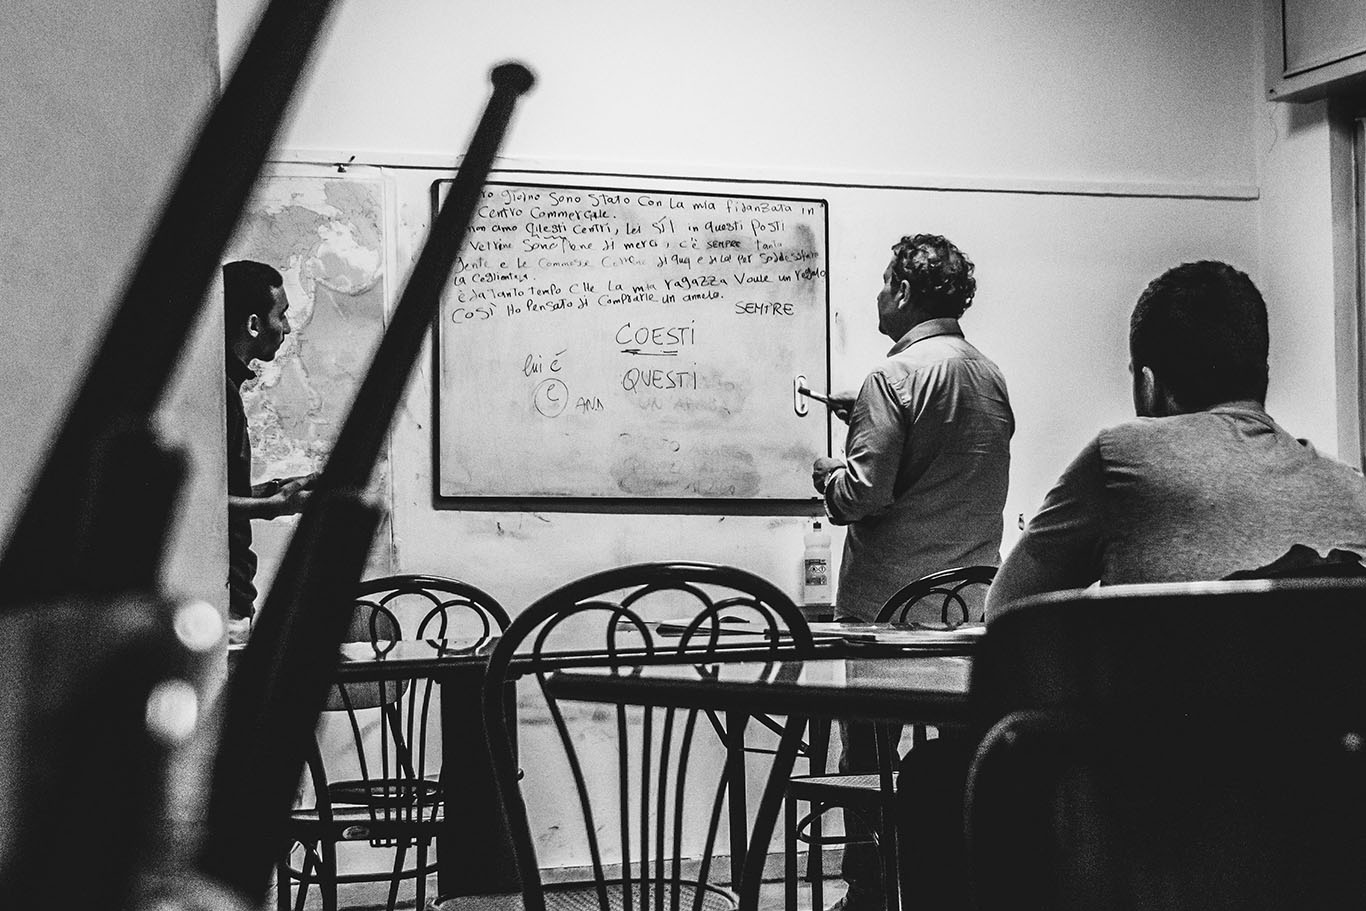 giorno sono stato con la mia fidanzata in
Centro Commerciale.
non amo questi centri, lei sì in questi posti
vetrine sono piene di merci, c'è sempre tanta
gente e le commesse corrono di qua e di la per soddisfare
la
è da tanto tempo che la mia ragazza vuole un regalo
così ho pensato di comprarle un anello.
SEMPRE
COESTI
lui è
QUESTI
e
ANA